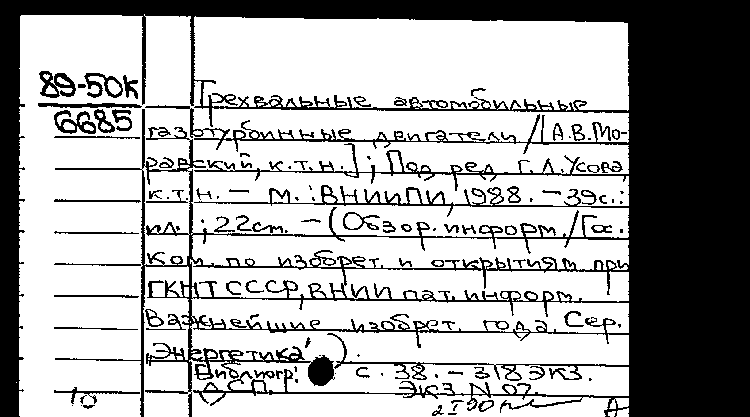 89-50К
6685
Трехвальные автомобильные
газотурбинные двигатели / [А.В. Мо-
равский, к.т.н.]; Под ред. Г.Л. Усова,
к.т.н. – М. : ВНИИПИ, 1988. – 39с.:
ил. ; 22см. – (Обзор. информ. / Гос.
ком. по изобрет. и открытиям при
ГКНТ СССР, ВНИИ пат. информ.
Важнейшие изобрет. года. Сер.
„Энергетика").
Библиогр: с. 38. – 318 экз.
ДСП. Экз. N 07.
10 А